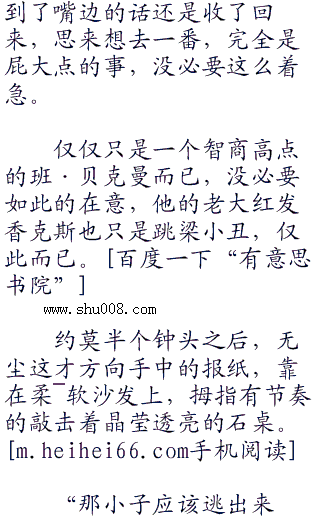 到了嘴边的话还是收了回
来，思来想去一番，完全是
屁大点的事，没必要这么着
急。
仅仅只是一个智商高点
的班·贝克曼而已，没必要
如此的在意，他的老大红发
香克斯也只是跳梁小丑，仅
此而已。[百度一下“有意思
书院”]
www.shu008.com
约莫半个钟头之后，无
尘这才方向手中的报纸，靠
在柔软沙发上，拇指有节奏
的敲击着晶莹透亮的石桌。
[m.heihei66.com手机阅读]
“那小子应该逃出来